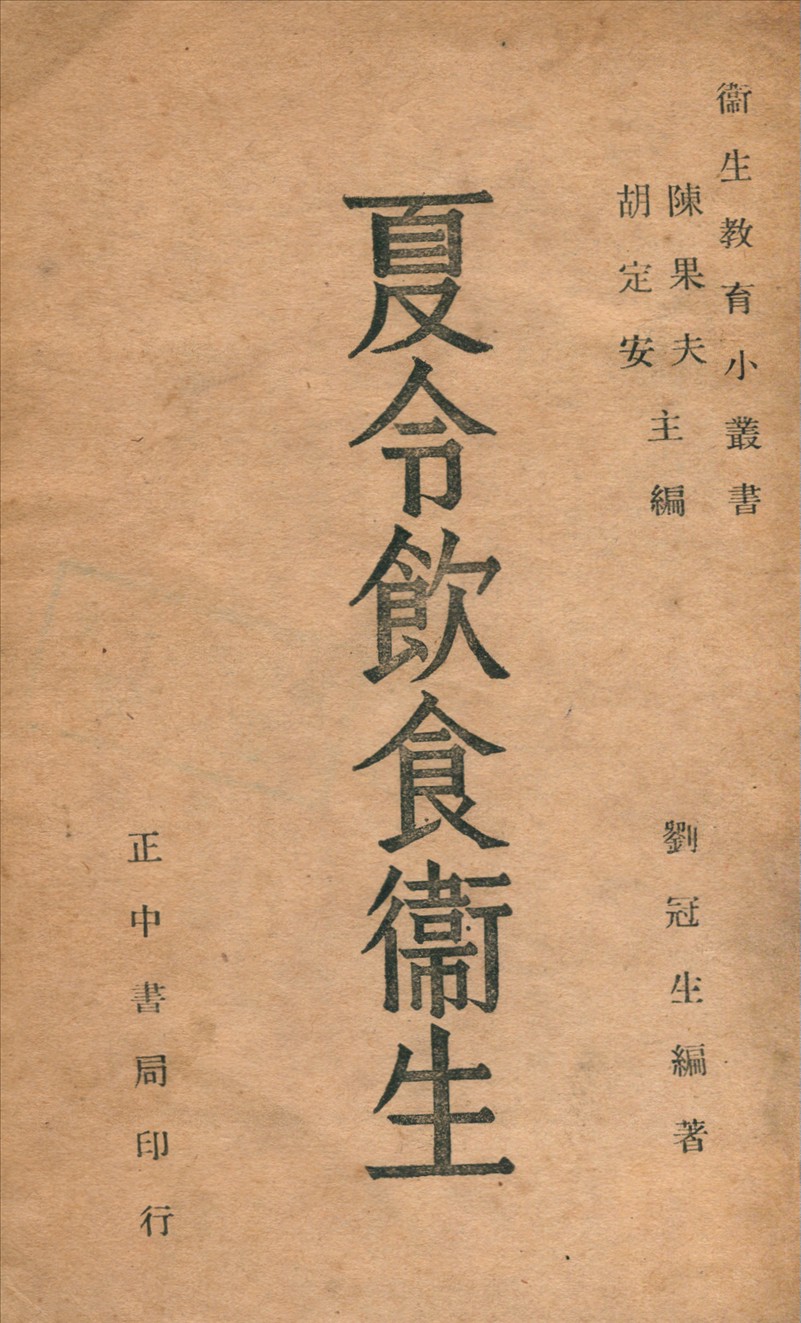 衞生教育小叢書
陳果夫
胡定安
主編
劉冠生編著
夏令飲食衞生
正中書局印行